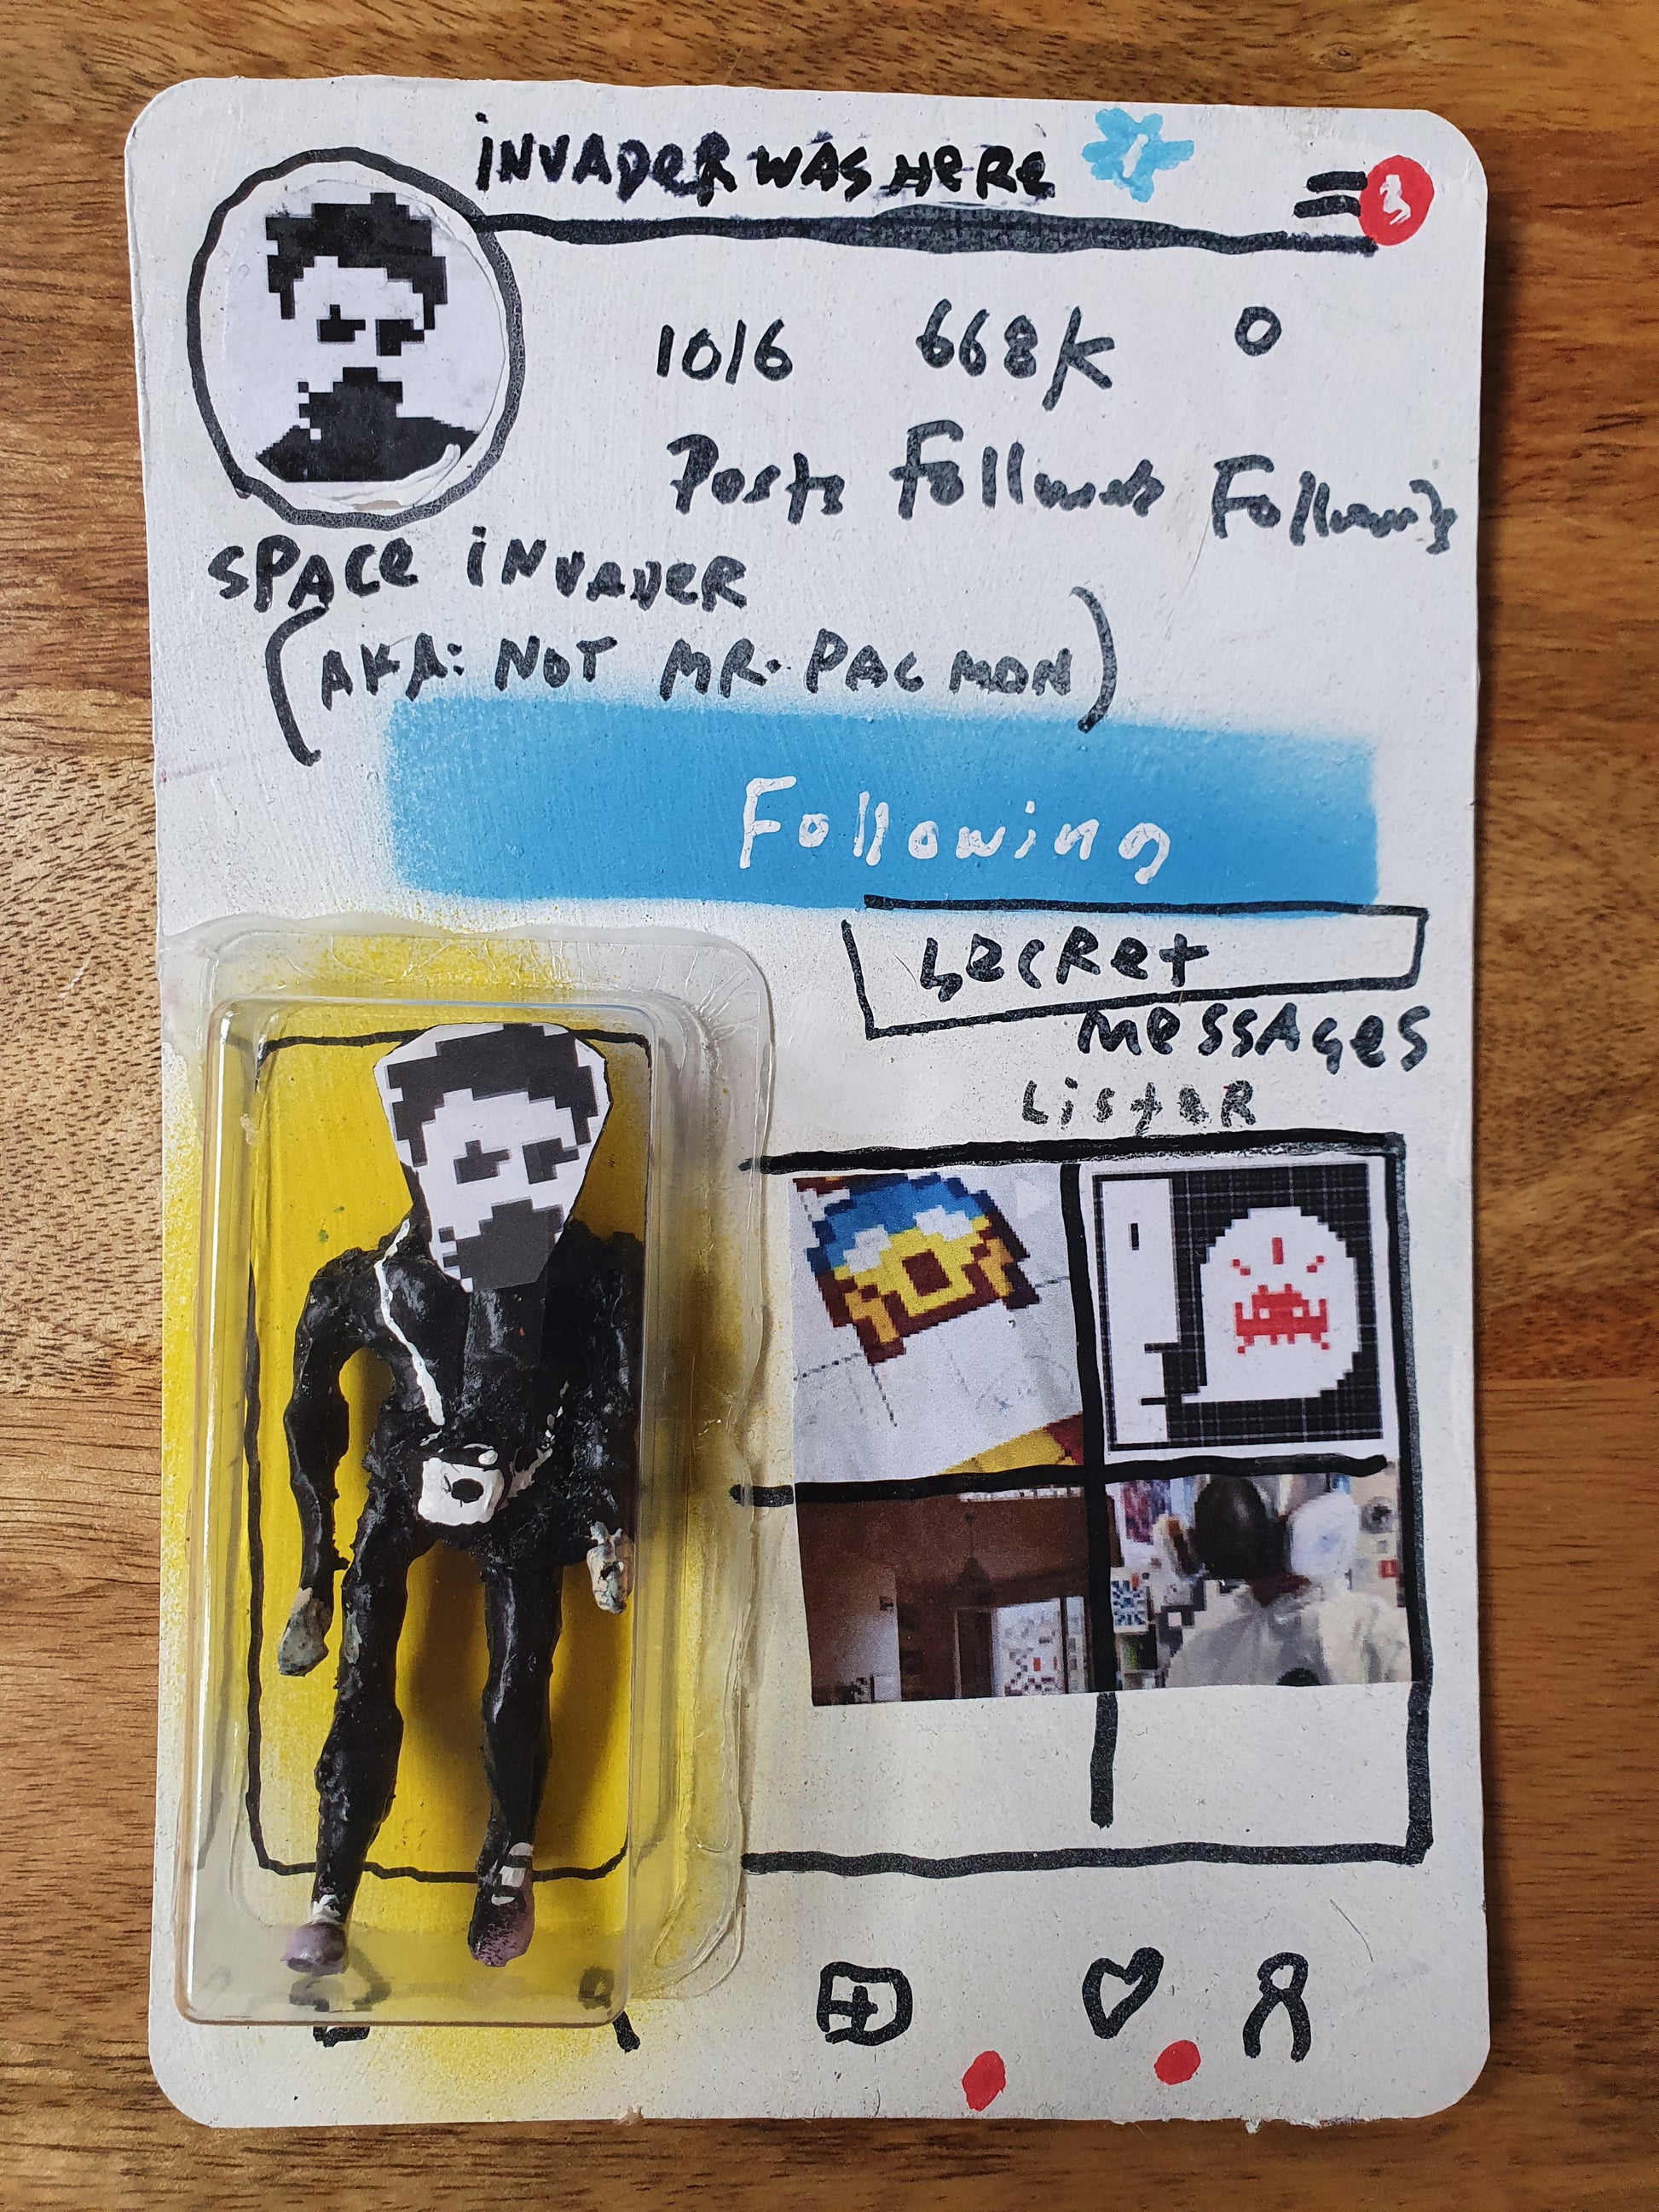 iNVADeR WAS HeRe
1016 668K 0
Posts Followers Following
SPACe iNVADeR
(AKA: NOT MR. PAC MAN)
Following
SecRet
MessAges